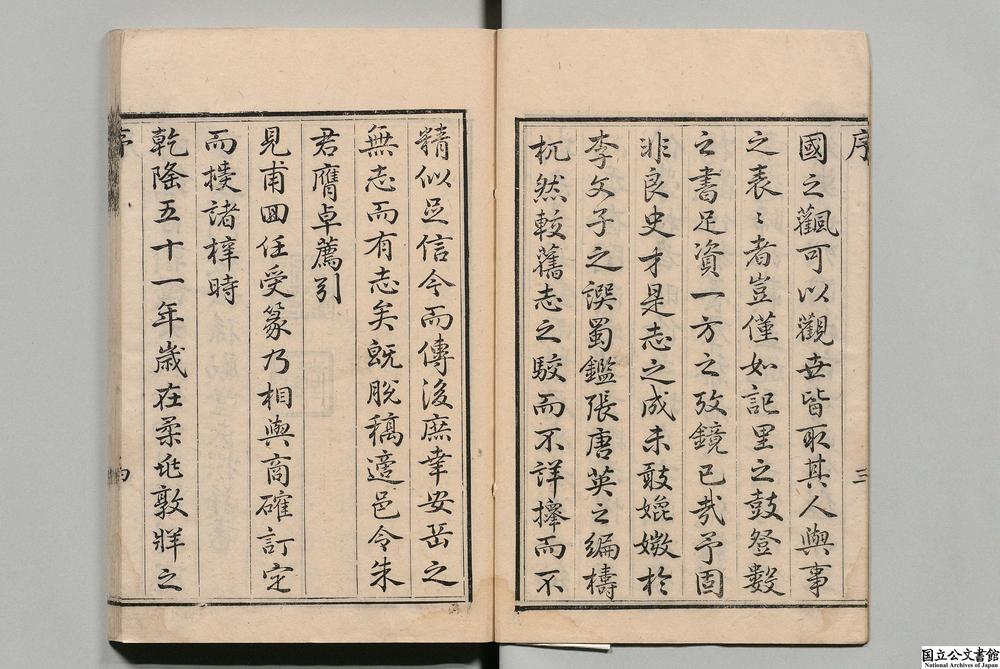 序
三
國之觀可以觀世皆取其人與事
之表〻者豈僅如記里之鼓登數
之書足資一方之攷鏡已哉予固
非良史才是志之成未敢媲媺於
李文子之譔蜀鑑張唐英之編檮
杌然較舊志之駮而不詳擇而不
精似足信今而傳後庶幸安岳之
無志而有志矣既脫稿適邑令朱
君膺卓薦引
見甫回任受篆乃相與商確訂定
而授諸梓時
乾隆五十一年歲在柔兆敦牂之
序
国立公文書館
National Archives of Japan